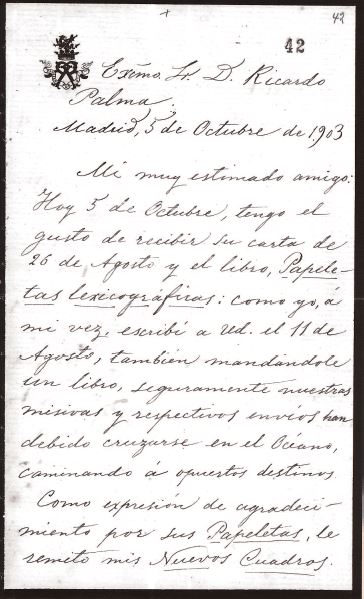 42
42
Exmo. Sr. D. Ricardo
Palma.
Madrid, 5 de Octubre de 1903
Mi muy estimado amigo:
Hoy 5 de Octubre, tengo el
gusto de recibir su carta de
26 de Agosto y el libro, Papele-
tas lexicográficas: como yo, á
mi vez, escribí a Ud. el 11 de
Agosto, tambien mandandole
un libro, seguramente nuestras
misivas y respectivos envíos han
debido cruzarse en el Océano,
caminando á opuestos destinos.
Como expresión de agradeci-
miento por sus Papeletas, le
remito mis Nuevos Cuadros.